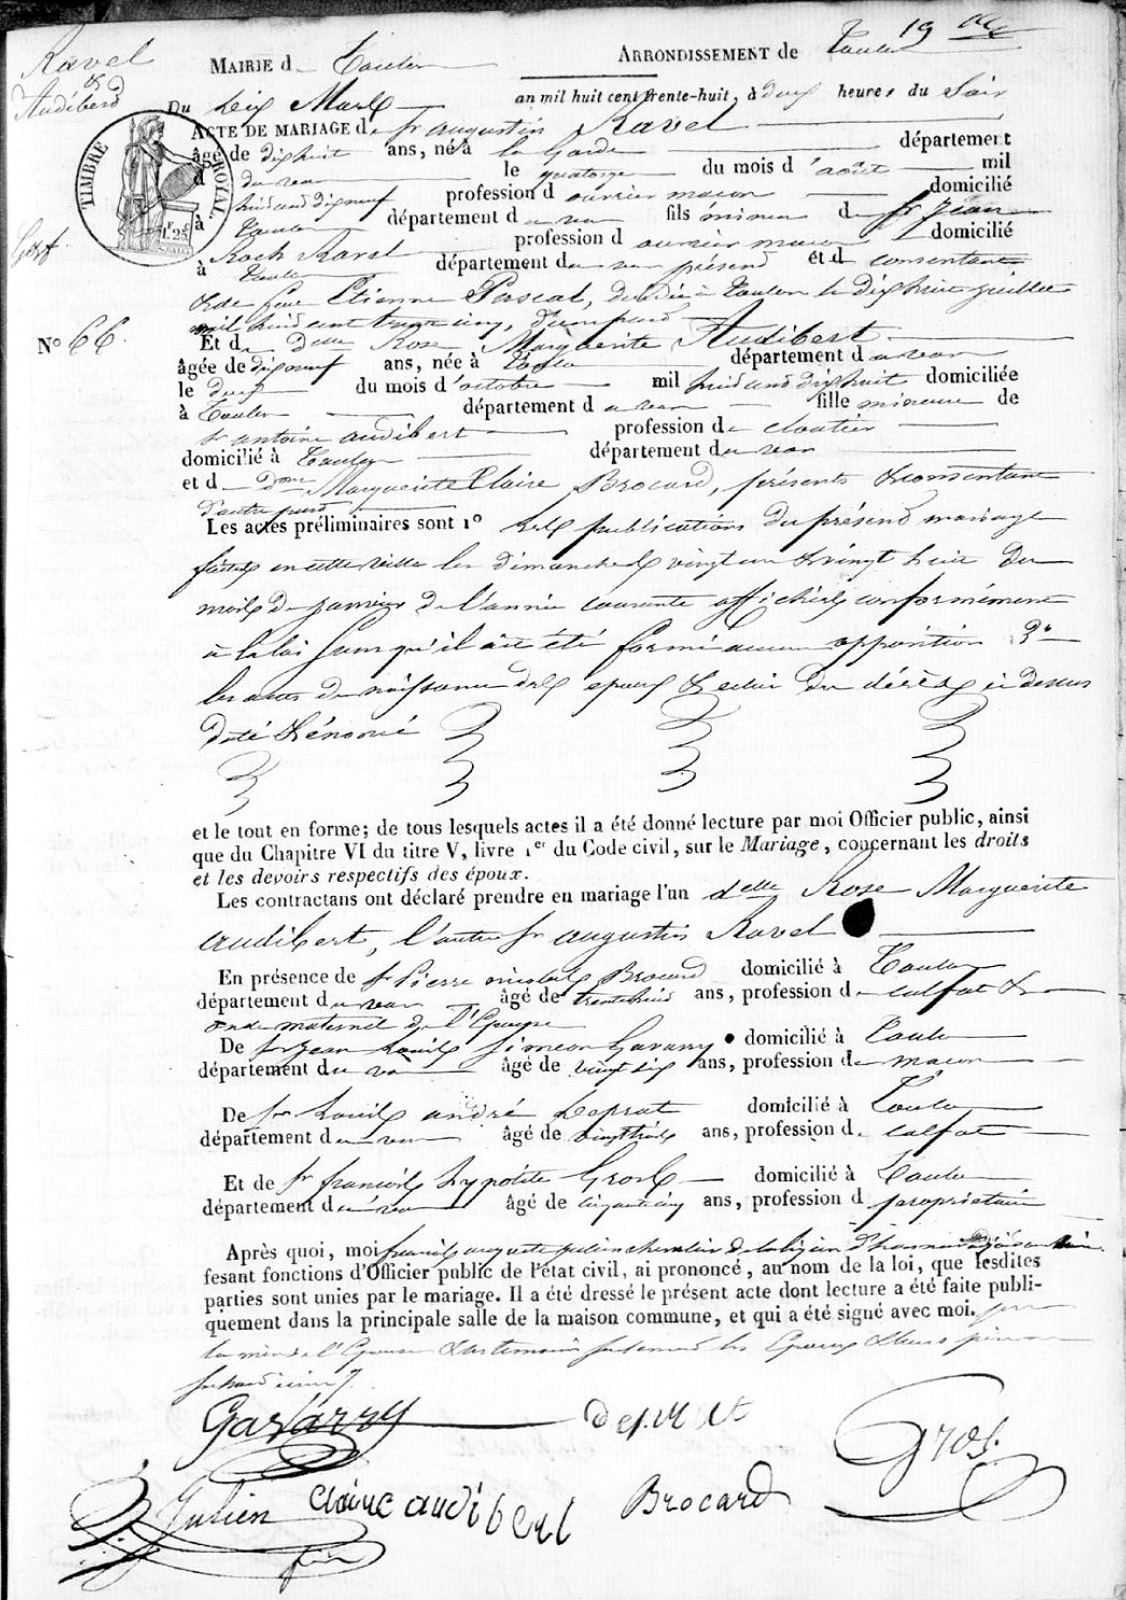 19
Ravel
&
Audiberd
MAIRIE d Toulon
ARRONDISSEMENT de Toulon
Du Deux Mars an mil huit cent trente-huit, à deux heures du Soir
ACTE DE MARIAGE de Sr augustin Ravel
âgé de dixhuit ans, né à la Garde département
d du var le quatorze du mois d'août mil
huit cent dix neuf profession d ouvrier macon domicilié
à Toulon département du var fils mineur de Sr Jean
Roch Ravel profession d ouvrier macon domicilié
à Toulon département du var présend et d consentant
& de feue Etienne Pascal, décédée à Toulon le dix huit juillet
mil huit cent trente cinq, d'une pard
TIMBRE ROYAL
1F 25C
N° 66.
Et de Dlle Rose Marguerite Audibert
âgée de dix neuf ans, née à Toulon département du var
le deux du mois d'octobre mil huit cent dix huit domiciliée
à Toulon département du var fille mineure de
Sr antoine audibert profession de cloutier
domicilié à Toulon département du var
et d Dme Marguerite Claire Brocard, présents & consentant
d'autre pard
Les actes préliminaires sont 1° Les publications du présend mariage
faites en cette ville les dimanches vingt un & vingt huit du
mois de janvier de l'année courante affichées conformément
à la loi sans qu'il ait été formé aucune opposition 2°
les actes de naissance des epoux & celui du décès ci dessus
daté & énoncé
et le tout en forme; de tous lesquels actes il a été donné lecture par moi Officier public, ainsi
que du Chapitre VI du titre V, livre 1er du Code civil, sur le Mariage, concernant les droits
et les devoirs respectifs des époux.
Les contractans ont déclaré prendre en mariage l'un dlle Rose Marguerite
audibert, l'autre Sr augustin Ravel
En présence de Sr Pierre nicolas Brocard domicilié à Toulon
département du var âgé de trente huit ans, profession de calfat &
oncle maternel de l'Epouse
De Sr Jean Louis Simeon Gavarry domicilié à Toulon
département du var âgé de vingt six ans, profession de macon
De Sr Louis andré Deprat domicilié à Toulon
département du var âgé de vingt trois ans, profession de calfat
Et de Sr francois hypolite Gros domicilié à Toulon
département du var âgé de cinquante cinq ans, profession d propriétaire
Après quoi, moi francois auguste julien chevalier de la légion d'honneur
fesant fonctions d'Officier public de l'état civil, ai prononcé, au nom de la loi, que lesdites
parties sont unies par le mariage. Il a été dressé le présent acte dont lecture a été faite publi-
quement dans la principale salle de la maison commune, et qui a été signé avec moi. par
la mère de l'Epouse & les temoins seulement les Epoux & leurs pères
Gavarry Deprat Gros.
Julien Claire audibert Brocard